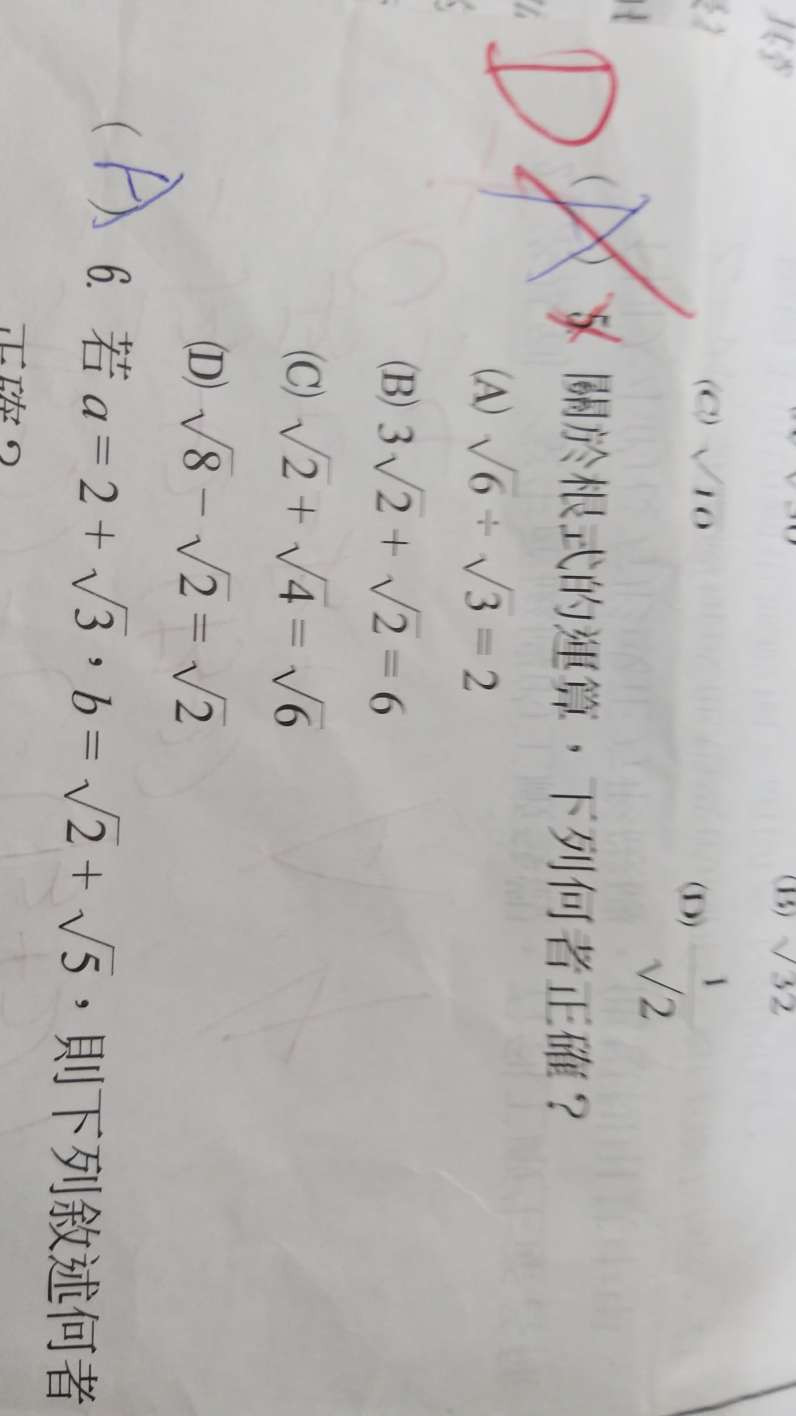 (B) √32
(C) √10
(D) 1/√2
D (A) 5. 關於根式的運算，下列何者正確？
(A) √6 ÷ √3 = 2
(B) 3√2 + √2 = 6
(C) √2 + √4 = √6
(D) √8 − √2 = √2
(A) 6. 若 a = 2 + √3，b = √2 + √5，則下列敘述何者
正確？